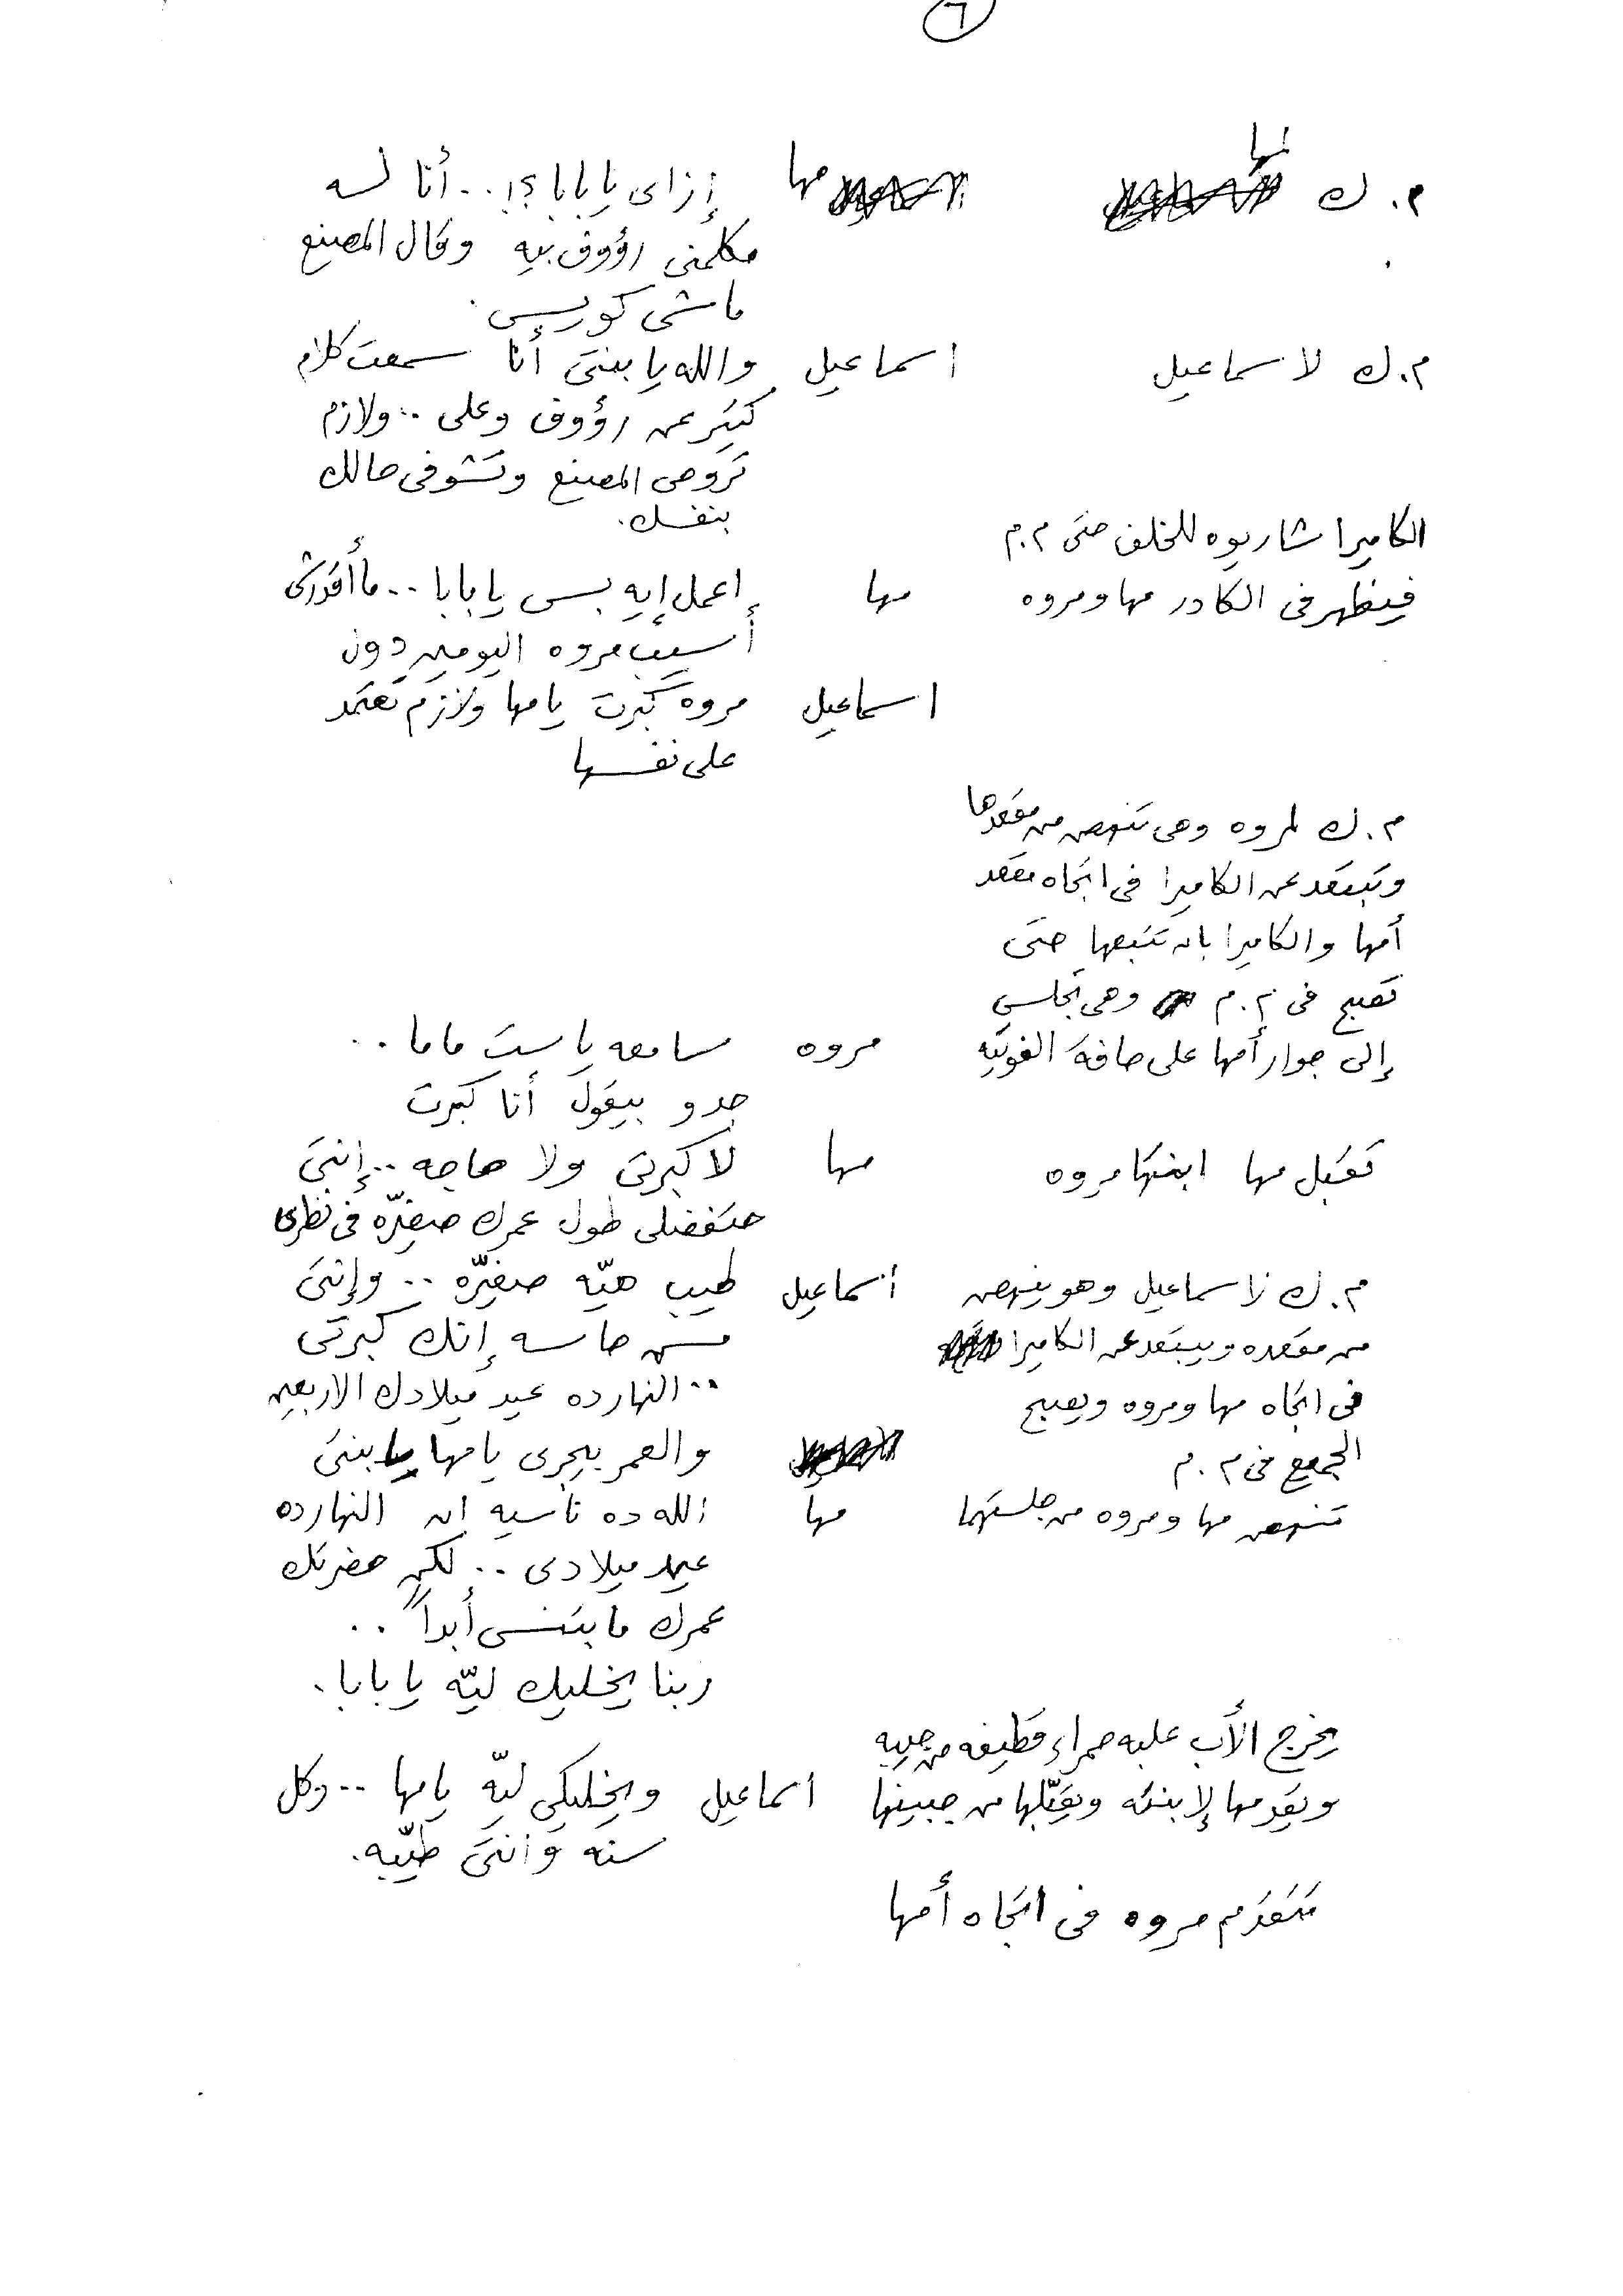 ٦
م. ك لمها
مها إزاى يا بابا؟!.. أنا لسه
مكلمنى رؤوف بيه وقال المصنع
ماشى كويس.
م. ك لاسماعيل
اسماعيل والله يا بنتى أنا سمعت كلام
كتير عن رؤوف وعلى .. ولازم
تروحى المصنع وتشوفى حالك
بنفسك.
الكاميرا شاريوه للخلف حتى م.م
فيظهر فى الكادر مها ومروه
مها اعمل إيه بس يا بابا .. ما أقدرش
أسيب مروه اليومين دول
اسماعيل مروه كبرت يا مها ولازم تعتمد
على نفسها
م. ك لمروه وهى تنهض من مقعدها
وتبتعد عن الكاميرا فى اتجاه مقعد
أمها والكاميرا بان تتبعها حتى
تصبح فى م.م وهى تجلس
إلى جوار أمها على حافة الفوتيه
مروه سامعه يا ست ماما ..
جدو بيقول أنا كبرت
تقبل مها ابنتها مروه
مها لا كبرتى ولا حاجه .. إنتى
حتفضلى طول عمرك صغيّره فى نظرى
م. ك لاسماعيل وهو ينهض
من مقعده ويبتعد عن الكاميرا
فى اتجاه مها ومروه ويصبح
الجميع فى م.م
اسماعيل طيب هيّه صغيّره .. وإنتى
مش حاسه إنك كبرتى
.. النهارده عيد ميلادك الاربعين
والعمر بيجرى يا مها يا بنتى
تنهض مها ومروه من جلستهما
مها الله ده ناسيه ان النهارده
عيد ميلادى .. لكن حضرتك
عمرك ما بتنسى أبداً ..
ربنا يخليك ليّه يا بابا.
يخرج الأب علبه حمراء قطيفه من جيبه
ويقدمها لإبنته ويقبّلها من جبينها
اسماعيل ويخليكى ليّه يا مها .. وكل
سنه وانتى طيّبه.
تتقدم مروه فى اتجاه أمها